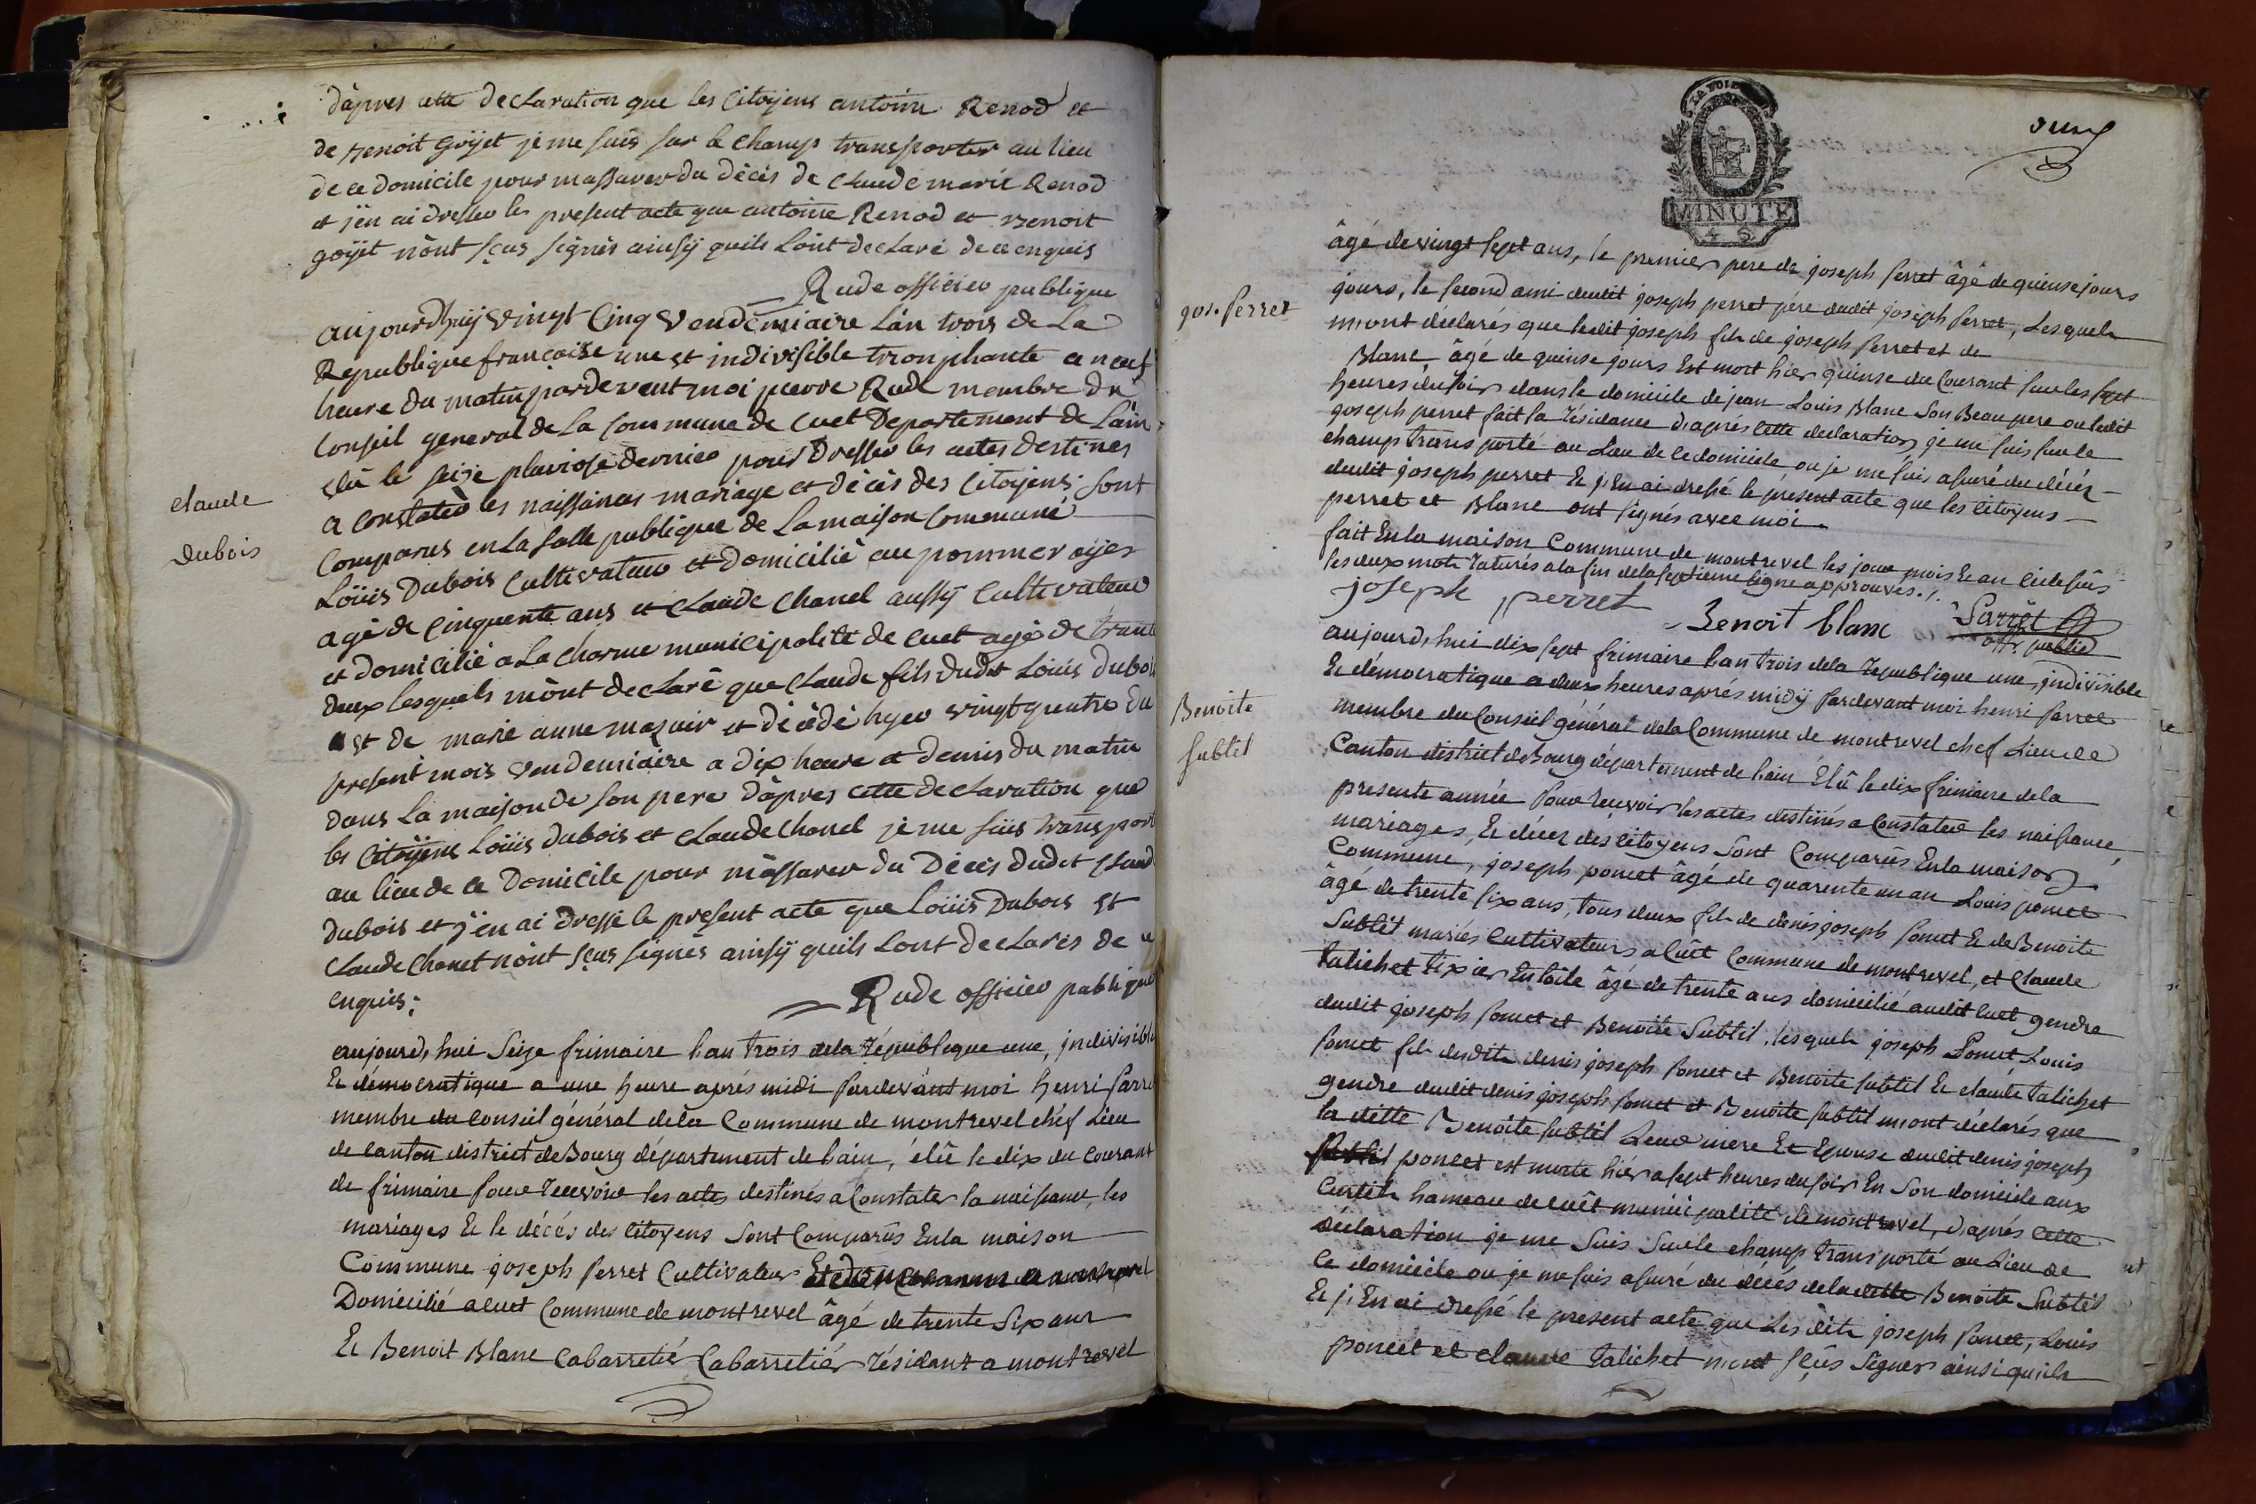 d'apres cette declaration que les Citoyens antoine Renod et
de Benoit goyet je me suis sur le champ transporter au lieu
de ce domicile pour massurer du décès de Claude marie Renod
et j'en ai dresser les present acte que antoine Renod et Benoit
goyet n'ont sçus signér ainsy quils Lont declaré de ce enquis
Rude officier publique
aujourdhuy vingt Cinq vendemiaire Lan trois de La
Republique francaise une et indivisible trionphante a neuf
heure du matin pardevent moi pierre Rude membre du
Conseil general de La Commune de Cuet Departement de Lain
élu le seize pluviose dernier pour dresser les actes destines
a constater les naissances mariage et décès des Citoyens: sont
claude
dubois
Comparus en La salle publique de La maison Commune
Loüis Dubois Cultivateur et domicilié au pommer oyer
agé de Cinquente ans et Claude Chanel aussy Cultivateur
et domicilié a La Charme municipalité de Cuet agé de trante
deux lesquels m'ont declaré que Claude fils dudit Loüis dubois
et de marie anne mazuir et décédé hyer vingt quatre du
present mois vendemiaire a dix heure et demis du matin
dans La maison de son pere d'apres cette declaration que
les Citoyens Loüis dubois et Claude Chanel je me suis transport
au lieu de ce Domicile pour m'assurer du Décés dudit Claud
dubois et j'en ai dressé le present acte que Loüis Dubois et
Claude Chanet n'ont sçus signés ainsy quils Lont declarés de ce
enquis:
Rude officier publique
aujourd,hui Seize frimaire l'an trois dela république une, jndivisible
Et démocratique a une heure aprés midi pardevant moi henri parre
membre du Conseil général dela Commune de montrevel chéf Lieu
de Canton district de Bourg département de l'ain, élû le dix du Courant
de frimaire pour recevoir les actes destinés a Constater la naissance, les
mariages Et le décés des Citoyens sont Comparûs En la maison
Commune joseph perret Cultivateur
Domicilié a cuet Commune de montrevel âgé de trente six ans
Et Benoit Blanc Cabarretié Cabarretiér résidant a montrevel
MINUTE
âgé de vingt sept ans, le premier pere de joseph perret âgé de quinse jours
jours, le second ami dudit joseph perret pere dudit joseph perret, Lesquels
jos. perret
m'ont declarés que ledit joseph fils de joseph perret et de
Blanc âgé de quinse jours Est mort hier quinse du Courant sur les sept
heures du soir dans le domicile de jean Louis Blanc son Beau pere ou ledit
joseph perret fait sa résidance d'aprés cette declaration je me suis sur le
champ trans porté au Lieu de ce domicile ou je me suis assuré du décés
dudit joseph perret Et j'En ai dressé le présent acte que les Citoyens
perret et Blanc ont signés avec moi
fait En la maison Commune de montrevel les jour mois Et an cidessûs
les deux mots raturés a la fin de la septieme ligne approuvés./.
joseph perret
Benoit blanc
Parret
off. public
aujourd,hui dix sept frimaire l'an trois dela république une, jndivisible
Et démocratique a deux heures aprés midy pardevant moi henri parret
Benoite
subtil
membre du Conseil général dela Commune de montrevel chef Lieu de
Canton district de Bourg département de l'ain Elû le dix frimaire dela
presente année pour recevoir les actes destinés a Constater les naissance,
mariages, Et décez des Citoyens sont Comparûs En la maison
Commune, joseph poncet âgé de quarente un an Louis poncet
âgé de trente six ans, tous deux fils de denis joseph poncet Et de Benoite
Subtil mariés Cultivateurs a Cuêt Commune de montrevel, et Claude
talichet tixier En toile âgé de trente ans domicilié audit cuet gendre
dudit joseph poncet et Benoite Subtil, lesquels joseph Poncet Louis
poncet fils dudits denis joseph poncet et Benoite subtil Et claude talichet
gendre dudit denis joseph poncet et Benoite subtil m'ont déclarés que
la ditte Benoite subtil Leur mere Et Epouse dudit denis joseph
poncet est morte hiér a sept heures du soir En son domicile aux
Curtils hameau de cuêt municipalité de montrevel, d'aprés cette
déclaration je me Suis Sur le champ transporté au Lieu de
ce domicile ou je me suis assuré du décés dela ditte Benoite Subtil
Et j'En ai dressé le present acte que Les dits joseph poncet, Louis
poncet et claude talichet n'ont sçûs signer ainsi qu'ils